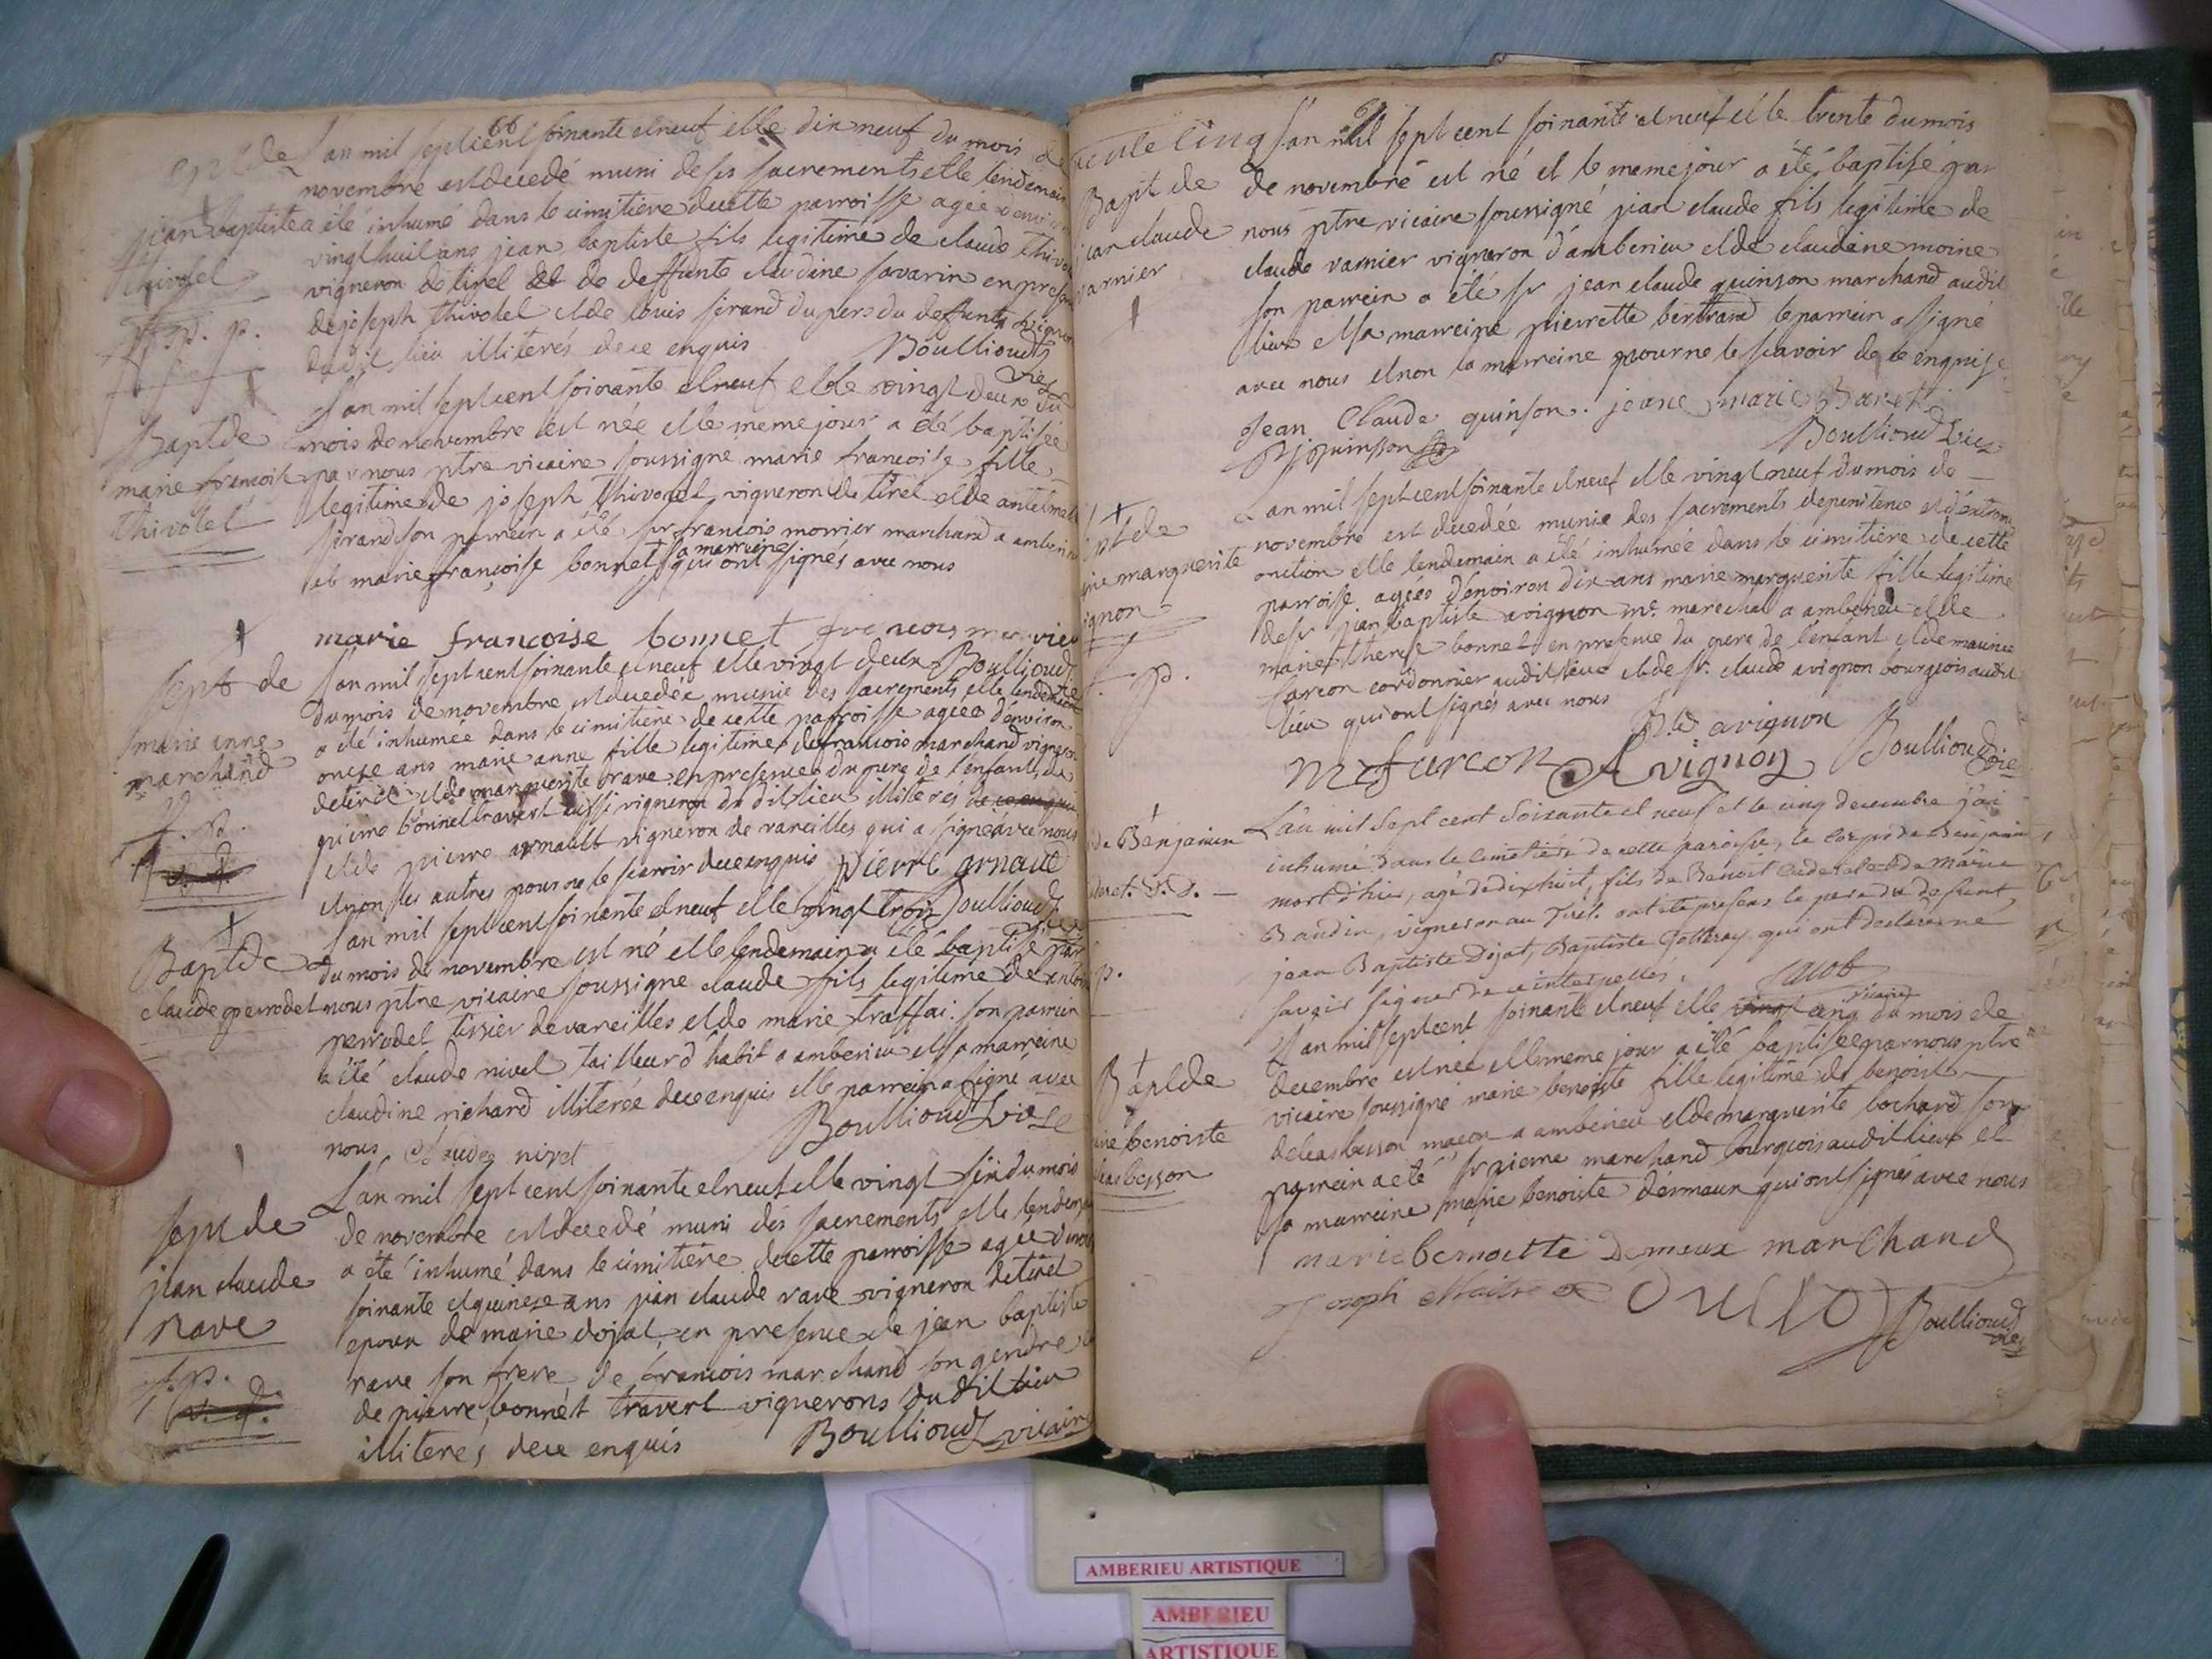 66
Sept de
jean baptiste
thivolet
L'an mil sept cent soixante et neuf et le dix neuf du mois de
novembre est decedé muni de ses sacrements et le lendemain
a été inhumé dans le cimitière de cette parroisse agée d'environ
vingt huit ans jean baptiste fils legitime de claude thivolet
vigneron de tiret et de deffunte claudine savarin en presence
de joseph thivolet et de louis sirand du pere du deffunt vigneron
dudit lieu illiterés de ce enquis
Boullioud vice
Bapt de
marie francoise
thivolet
L'an mil sept cent soixante et neuf et le vingt deux du
mois de novembre est née et le meme jour a été baptisée
par nous ptre vicaire soussigné marie francoise fille
legitime de joseph thivolet vigneron de tiret et de antelmette
sirand son parrein a été sr francois monvier marchand a amberieu
et marie françoise bonnet sa marreine qui ont signés avec nous
marie francoise bonnet
Boullioud vice
Sept de
marie anne
marchand
L'an mil sept cent soixante et neuf et le vingt deux
du mois de novembre est decedée munie des sacrements et le lendemain
a été inhumée dans le cimitière de cette parroisse agée d'environ
onze ans marie anne fille legitime de francois marchand vigneron
de tiret et de marguerite rave en presence du pere de l'enfant, de
pierre bonnet travert aussi vigneron du dit lieu illiterés de ce enquis
et de pierre arnault vigneron de vareilles qui a signé avec nous
et non les autres pour ne le scavoir de ce enquis pierre arnaud
Boullioud vice
Bapt de
claude perrodet
L'an mil sept cent soixante et neuf et le vingt trois
du mois de novembre est né et le lendemain a été baptisé par
nous ptre vicaire soussigné claude fils legitime de antoine
perrodet tissier de vareilles et de marie traffai. son parrein
a été claude nivet tailleur d'habit a amberieu et sa marreine
claudine richard illiterée de ce enquis et le parrein a signé avec
nous Claude nivet
Boullioud vice
Sept de
jean claude
rave
L'an mil sept cent soixante et neuf et le vingt six du mois
de novembre est decedé muni des sacrements et le lendemain
a été inhumé dans le cimitière de cette parroisse agée d'environ
soixante et quinze ans jean claude rave vigneron de tiret
epoux de marie dojat, en presence de jean baptiste
rave son frere de francois marchand son gendre
de pierre bonnet travert vignerons du dit lieu
illiterés de ce enquis
Boullioud vicaire
Bapt de
jean claude
varnier
L'an mil sept cent soixante et neuf et le trente du mois
de novembre est né et le meme jour a été baptisé par
nous ptre vicaire soussigné jean claude fils legitime de
claude varnier vigneron d'amberieu et de claudine moine
son parrein a été sr jean claude quinson marchand audit
lieu et sa marreine pierrette bertrand le parrein a signé
avec nous et non la marreine pour ne le scavoir de ce enquise
Jean Claude quinson. jeane marie
Boullioud vice
marguerite
L'an mil sept cent soixante et neuf et le vingt neuf du mois de
novembre est decedée munie des sacrements de penitence et d'extreme
onction et le lendemain a été inhumée dans le cimitière de cette
parroisse agées d'environ dix ans marie marguerite fille legitime
de sr jean baptiste avignon me marechal a amberieu et de
marie therese bonnet en presence du pere de l'enfant et de maurice
farcon cordonnier audit lieu et de sr claude avignon bourgeois audit
lieu qui ont signés avec nous
avignon
M farcon Avignon Boullioud vice
de Benjamin
L'an mil sept cent soixante et neuf et le cinq decembre j'ai
inhumé dans le cimetière de cette paroisse, le corps de Benjamin
mort d'hier, agé de dixhuit, fils de Benoit et de Marie
Baudin, vigneron au Tiret. ont été presens le pere du defunt,
jean Baptiste Dojat, Baptiste qui ont declaré ne
savoir signer de ce interpellés.
Jacob
vicaire
Bapt de
benoiste
L'an mil sept cent soixante et neuf et le cinq du mois de
decembre est née et le meme jour a été baptisée par nous ptre
vicaire soussigné marie benoiste fille legitime de benoist
delasbesson maçon a amberieu et de marguerite bochard son
parrein a été sr pierre marchand bourgeois audit lieu et
sa marreine marie benoiste dermaux qui ont signés avec nous
marie benoitte marchand
Boullioud vice
AMBERIEU ARTISTIQUE
AMBERIEU
ARTISTIQUE